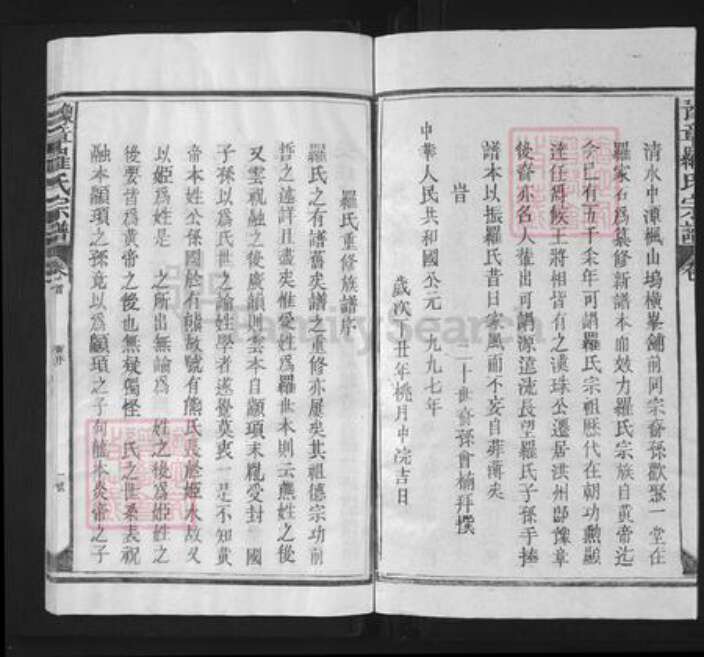 豫章羅氏宗譜
清水中潭楓山塢橫峯舖前同宗裔孫歡聚一堂在
羅家石爲纂修新譜本由效力羅氏宗族自黃帝迄
今已有五千余年可謂羅氏宗祖歷代在朝功勳顯
達任爵候王將相皆有之漢珠公遷居洪州卽豫章
後裔亦名人輩出可謂源遠流長望羅氏子孫手捧
譜本以振羅氏昔日家風而不妄自菲薄矣
旹
中華人民共和國公元一九九七年
歲次丁丑年桃月中浣吉日
二十世裔孫會楠拜撰
羅氏重修族譜序
羅氏之有譜舊矣譜之重修亦屢矣其祖德宗功前
哲之述詳且盡矣惟受姓爲羅世本則云熊姓之後
又雲祝融之後廣韻則雲本自顓頊末胤受封 國
子孫以爲氏世之論姓學者遂譽莫衷一是不知黃
帝本姓公孫國於有熊故號有熊氏長於姬水故又
以姬爲姓是 之所出無論爲 姓之後爲姬姓之
後要皆爲黃帝之後也無疑獨怪 氏之世系表祝
融本顓頊之孫竟以爲顓頊之子句 本炎帝之子
豫章羅氏宗譜
卷首
一號
FamilySearch